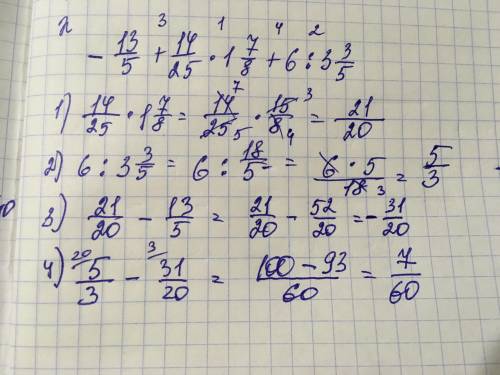 л 3 1 4 2
- 13/5 + 14/25 · 1 7/8 + 6 : 3 3/5
1) 14/25 · 1 7/8 = 14 7/25 5 · 15 3/8 4 = 21/20
2) 6 : 3 3/5 = 6 : 18/5 = 6 · 5/18 3 = 5/3
3) 21/20 - 13/5 = 21/20 - 52/20 = - 31/20
4) 20/ 5/3 - 3/ 31/20 = 100 - 93/60 = 7/60